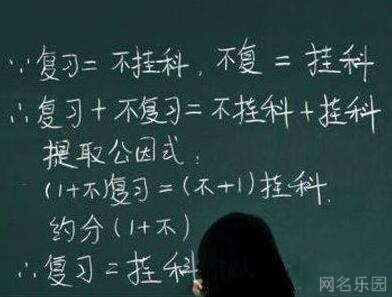 ∵复习=不挂科,不复=挂科
∴复习+不复习=不挂科+挂科
提取公因式:
(1+不)复习=(不+1)挂科.
约分(1+不)
∴复习=挂科
网名乐园